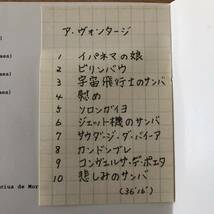 ア.ヴォンタージ
1 イパネマの娘
2 ビリンバウ
3 宇宙飛行士のサンバ
4 慰め
5 ソロンガイヨ
6 ジェット機のサンバ
7 サウダージ・ダ・バイーア
8 カンドンブレ
9 コンヴェルサ・ヂ・ポエタ
10 悲しみのサンバ
(36'16")
ius de Mor